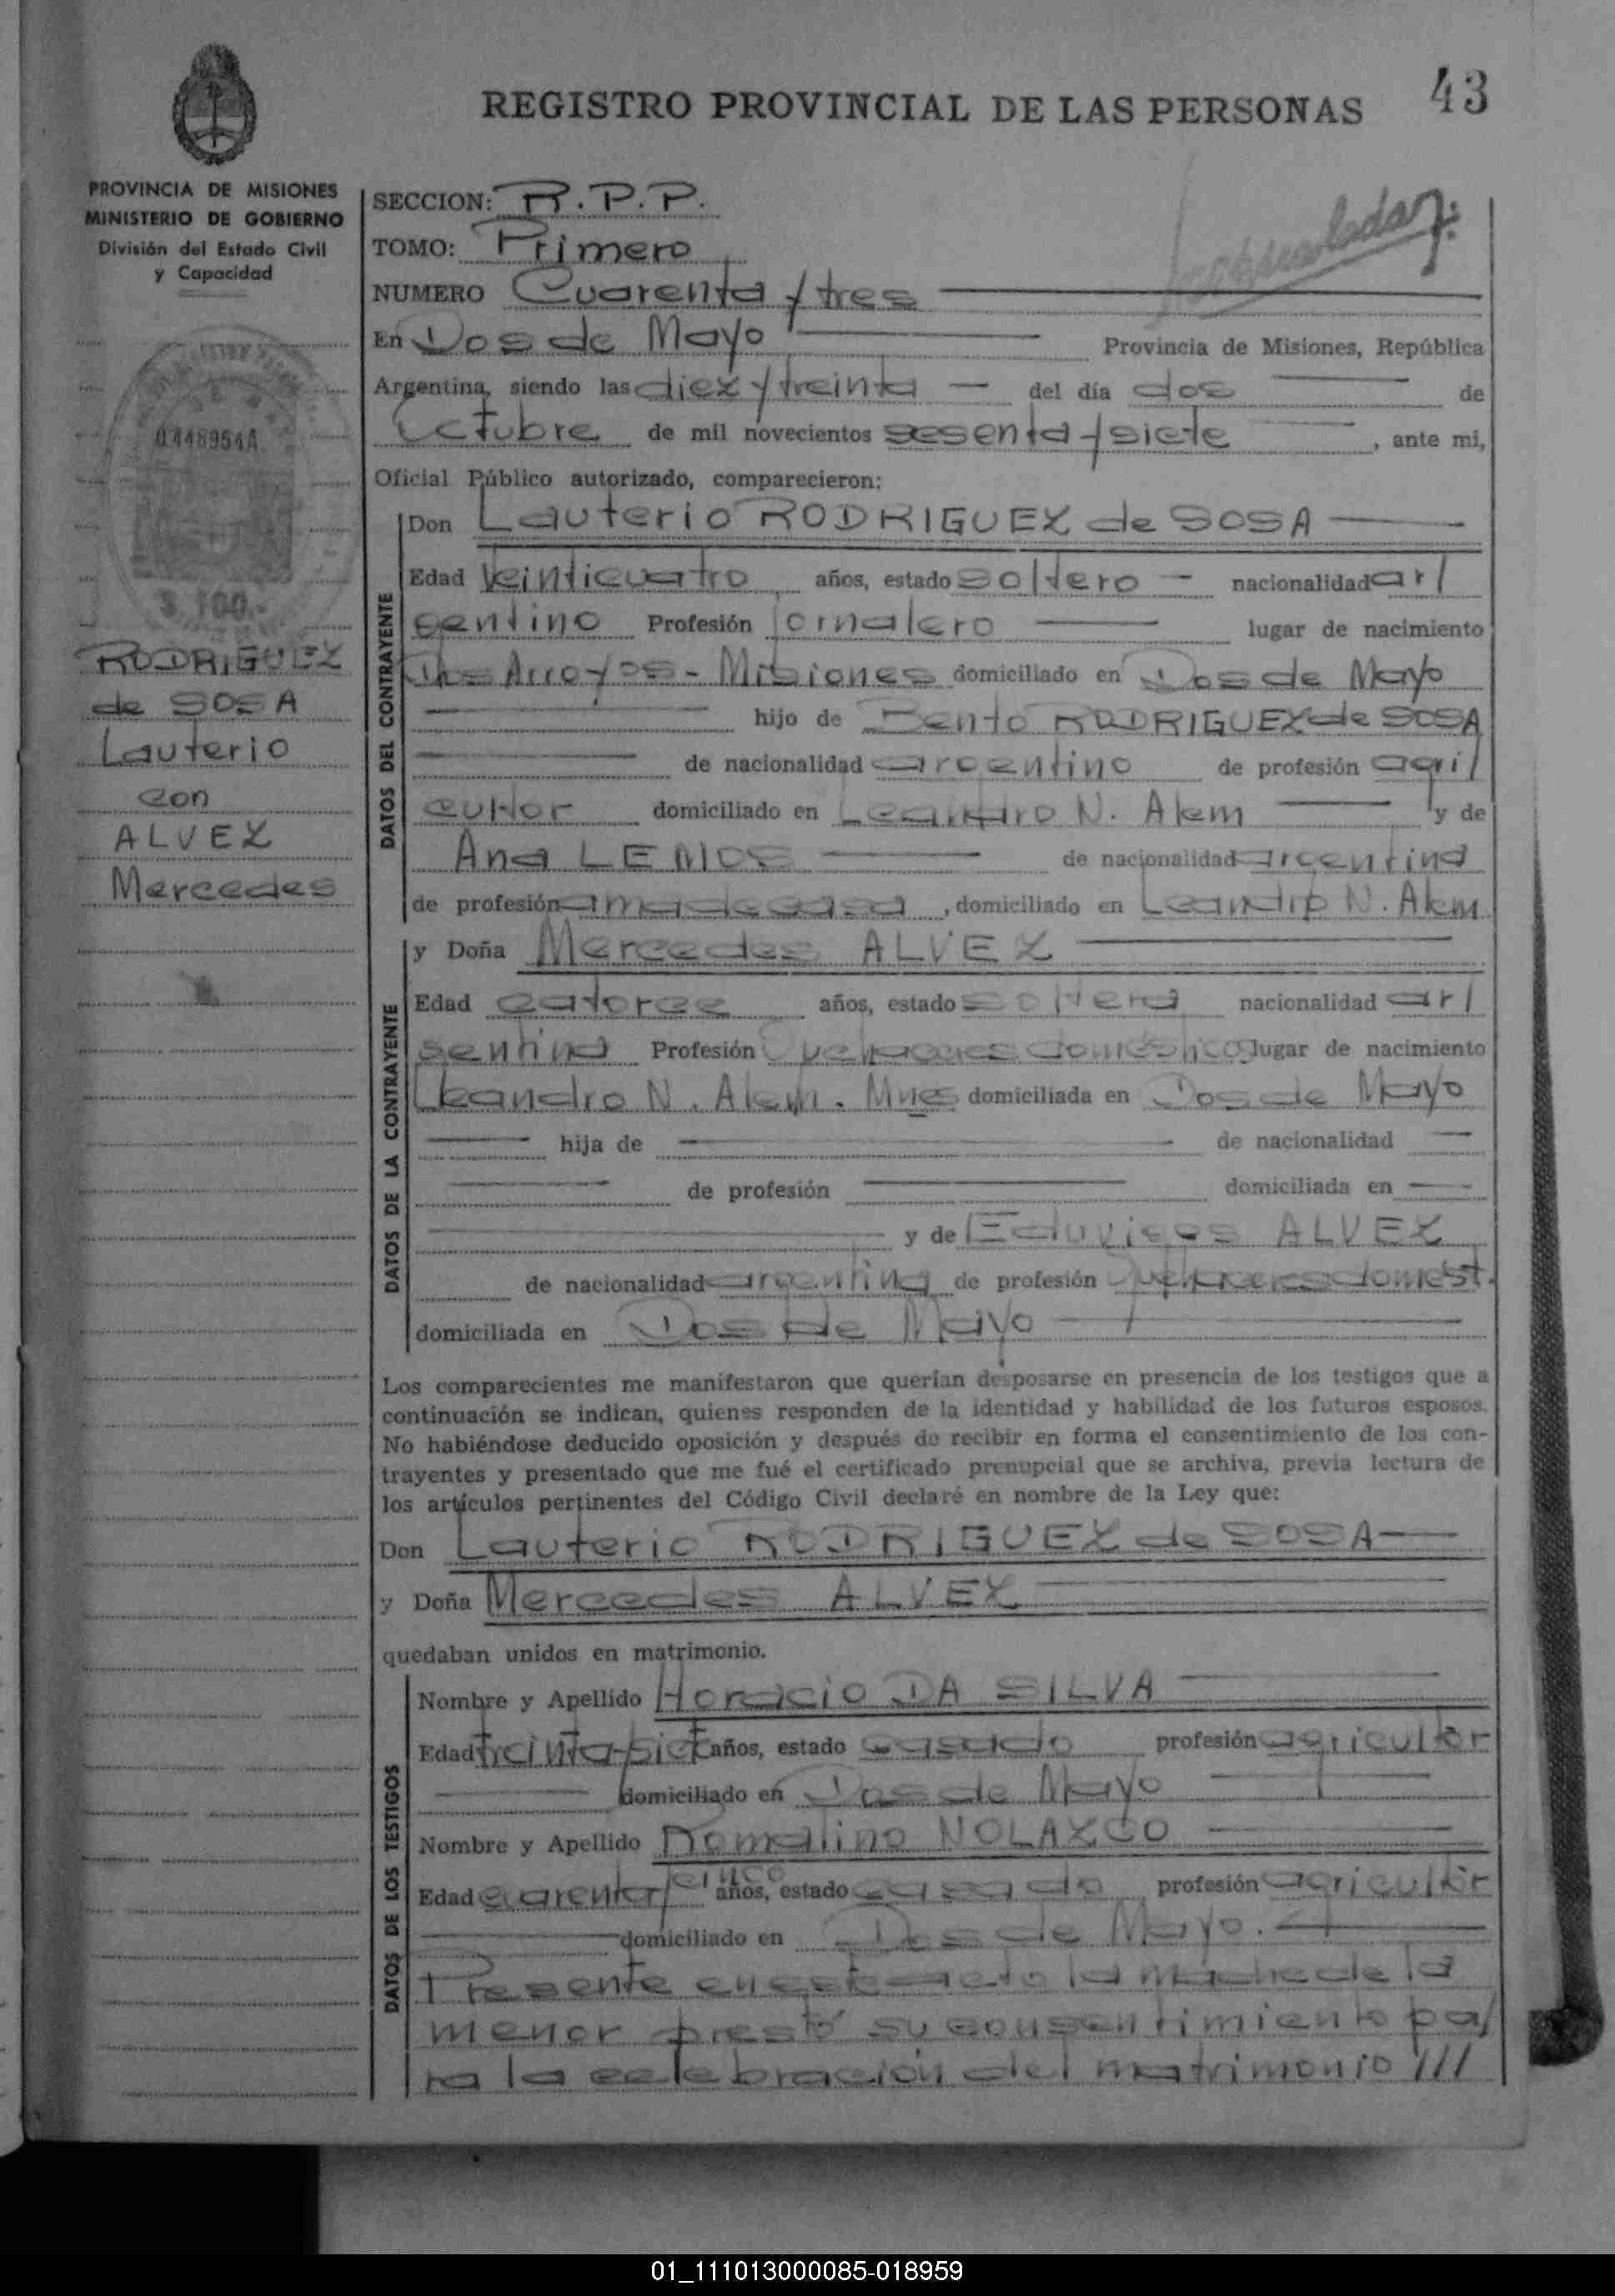 43
REGISTRO PROVINCIAL DE LAS PERSONAS
PROVINCIA DE MISIONES
MINISTERIO DE GOBIERNO
División del Estado Civil
y Capacidad
0448954A
$ 100.-
RODRIGUEZ
de SOSA
Lauterio
con
ALVEZ
Mercedes
SECCION: R.P.P.
TOMO: Primero
NUMERO Cuarenta y tres
En Dos de Mayo Provincia de Misiones, República
Argentina, siendo las diez y treinta del día dos de
Octubre de mil novecientos sesenta y siete, ante mi,
Oficial Público autorizado, comparecieron:
DATOS DEL CONTRAYENTE
Don Lauterio RODRIGUEZ de SOSA
Edad veinticuatro años, estado soltero nacionalidad ar/
gentino Profesión jornalero lugar de nacimiento
Dos Arroyos - Misiones domiciliado en Dos de Mayo
hijo de Bento RODRIGUEZ de SOSA
de nacionalidad argentino de profesión agri/
cultor domiciliado en Leandro N. Alem y de
Ana LEMOS de nacionalidad argentina
de profesión ama de casa, domiciliado en Leandro N. Alem
DATOS DE LA CONTRAYENTE
y Doña Mercedes ALVEZ
Edad catorce años, estado soltera nacionalidad ar/
gentina Profesión Quehaceres domésticos lugar de nacimiento
Leandro N. Alem. Mnes domiciliada en Dos de Mayo
hija de de nacionalidad
de profesión domiciliada en
y de Eduviges ALVEZ
de nacionalidad argentina de profesión Quehaceres domést.
domiciliada en Dos de Mayo
Los comparecientes me manifestaron que querían desposarse en presencia de los testigos que a
continuación se indican, quienes responden de la identidad y habilidad de los futuros esposos.
No habiéndose deducido oposición y después de recibir en forma el consentimiento de los con-
trayentes y presentado que me fué el certificado prenupcial que se archiva, previa lectura de
los artículos pertinentes del Código Civil declaré en nombre de la Ley que:
Don Lauterio RODRIGUEZ de SOSA
y Doña Mercedes ALVEZ
quedaban unidos en matrimonio.
DATOS DE LOS TESTIGOS
Nombre y Apellido Horacio DA SILVA
Edad treinta y siete años, estado casado profesión agricultor
domiciliado en Dos de Mayo
Nombre y Apellido Romalino NOLAZCO
Edad cuarenta y cinco años, estado casado profesión agricultor
domiciliado en Dos de Mayo.
Presente en este acto la madre de la
menor prestó su consentimiento pa/
ra la celebración del matrimonio ///
01_111013000085-018959